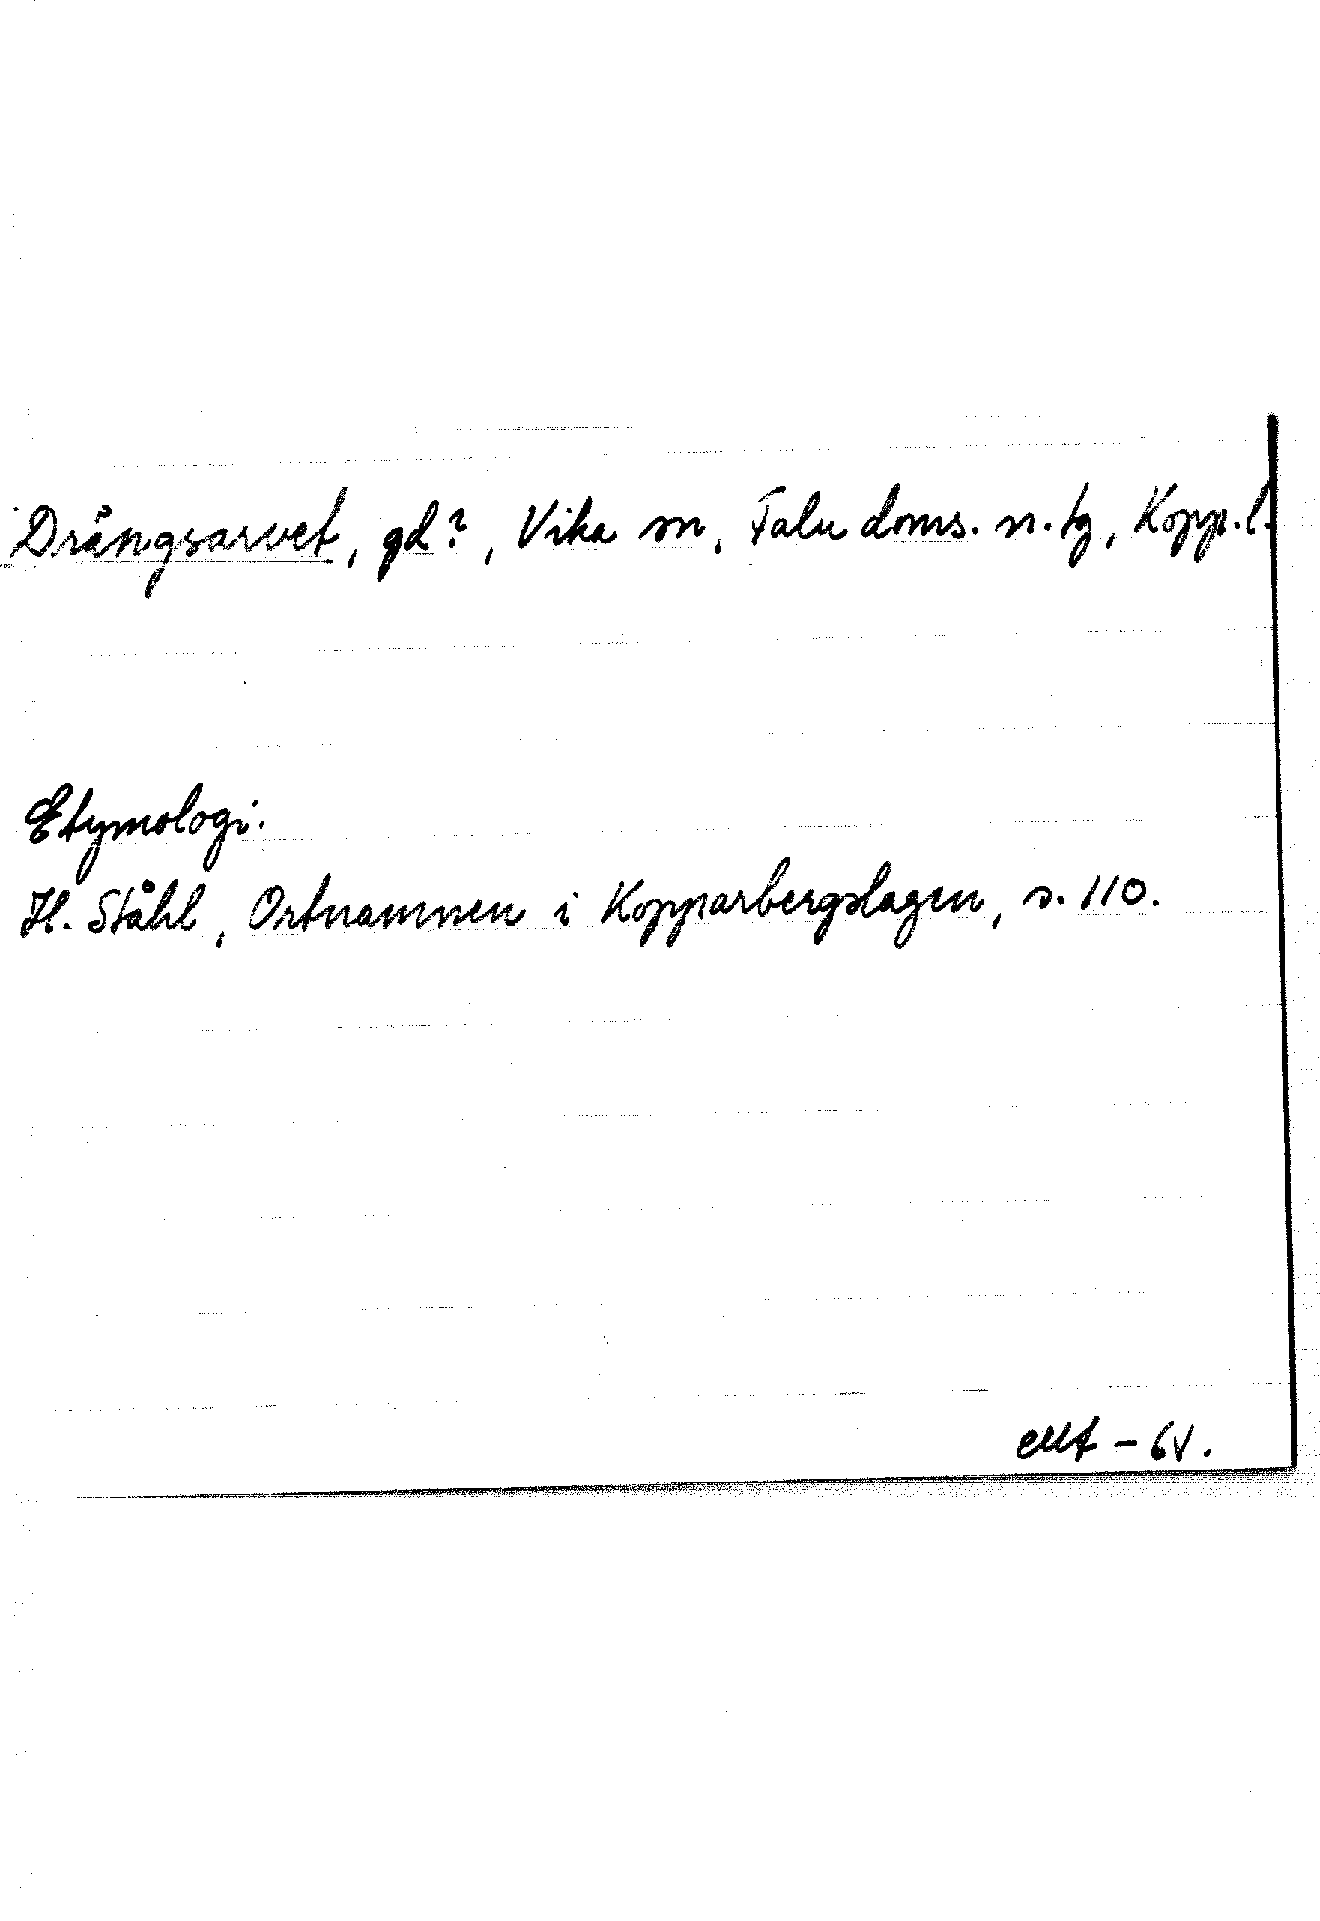 Drängsarvet, gd?, Vika sn, Falu doms. n. tg, Kopp. l.
Etymologi.
H. Ståhl, Ortnamnen i Kopparbergslagen, s. 110.